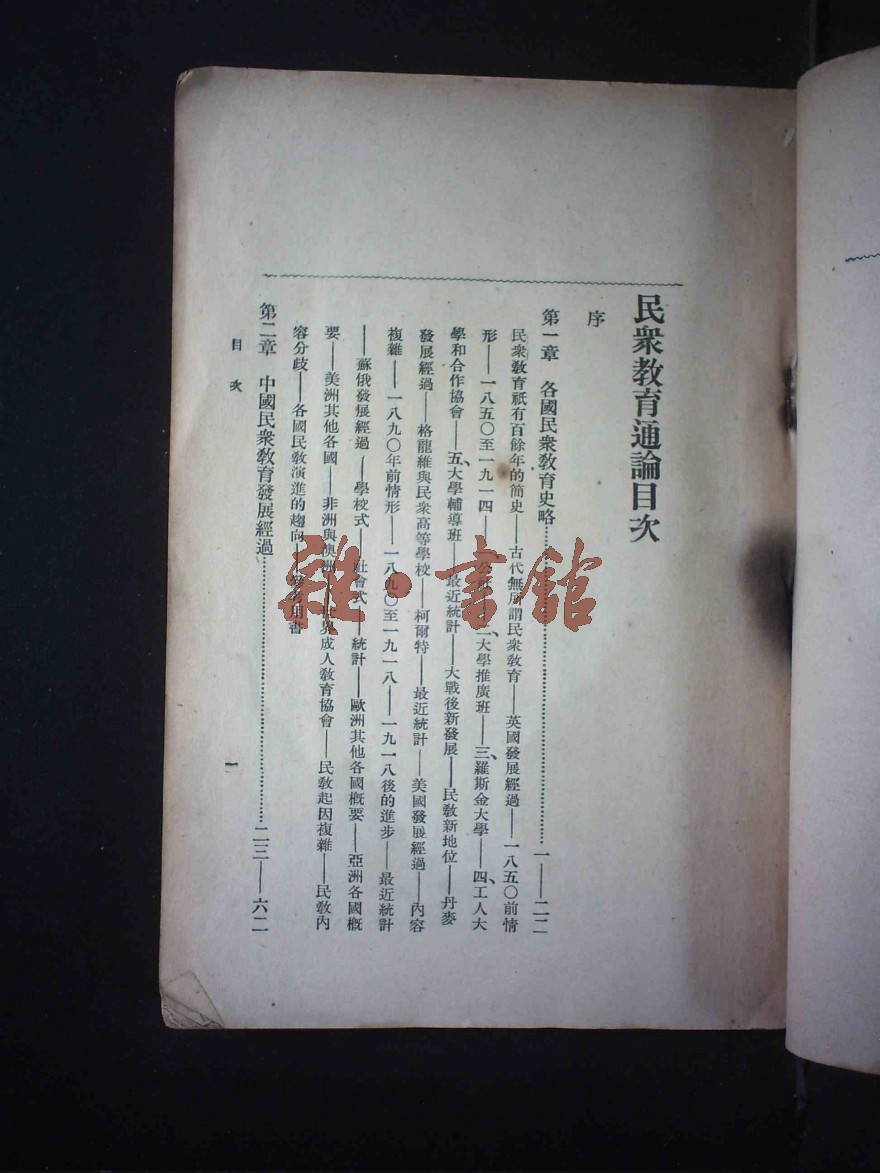 民衆教育通論目次
序
第一章 各國民衆教育史略……………一——二二
民衆教育祇有百餘年的簡史——古代無所謂民衆教育——英國發展經過——一八五〇前情
形——一八五〇至一九一四——二、大學推廣班——三、羅斯金大學——四、工人大
學和合作協會——五、大學輔導班——最近統計——大戰後新發展——民教新地位——丹麥
發展經過——格龍維與民衆高等學校——柯爾特——最近統計——美國發展經過——內容
複雜——一八九〇年前情形——一八九〇至一九一八——一九一八後的進步——最近統計
——蘇俄發展經過——學校式——社會式——統計——歐洲其他各國概要——亞洲各國概
要——美洲其他各國——非洲與澳洲——世界成人教育協會——民教起因複雜——民教內
容分歧——各國民教演進的趨向——參考用書
第二章 中國民衆教育發展經過……………二三——六二
目次
一
雜·書館